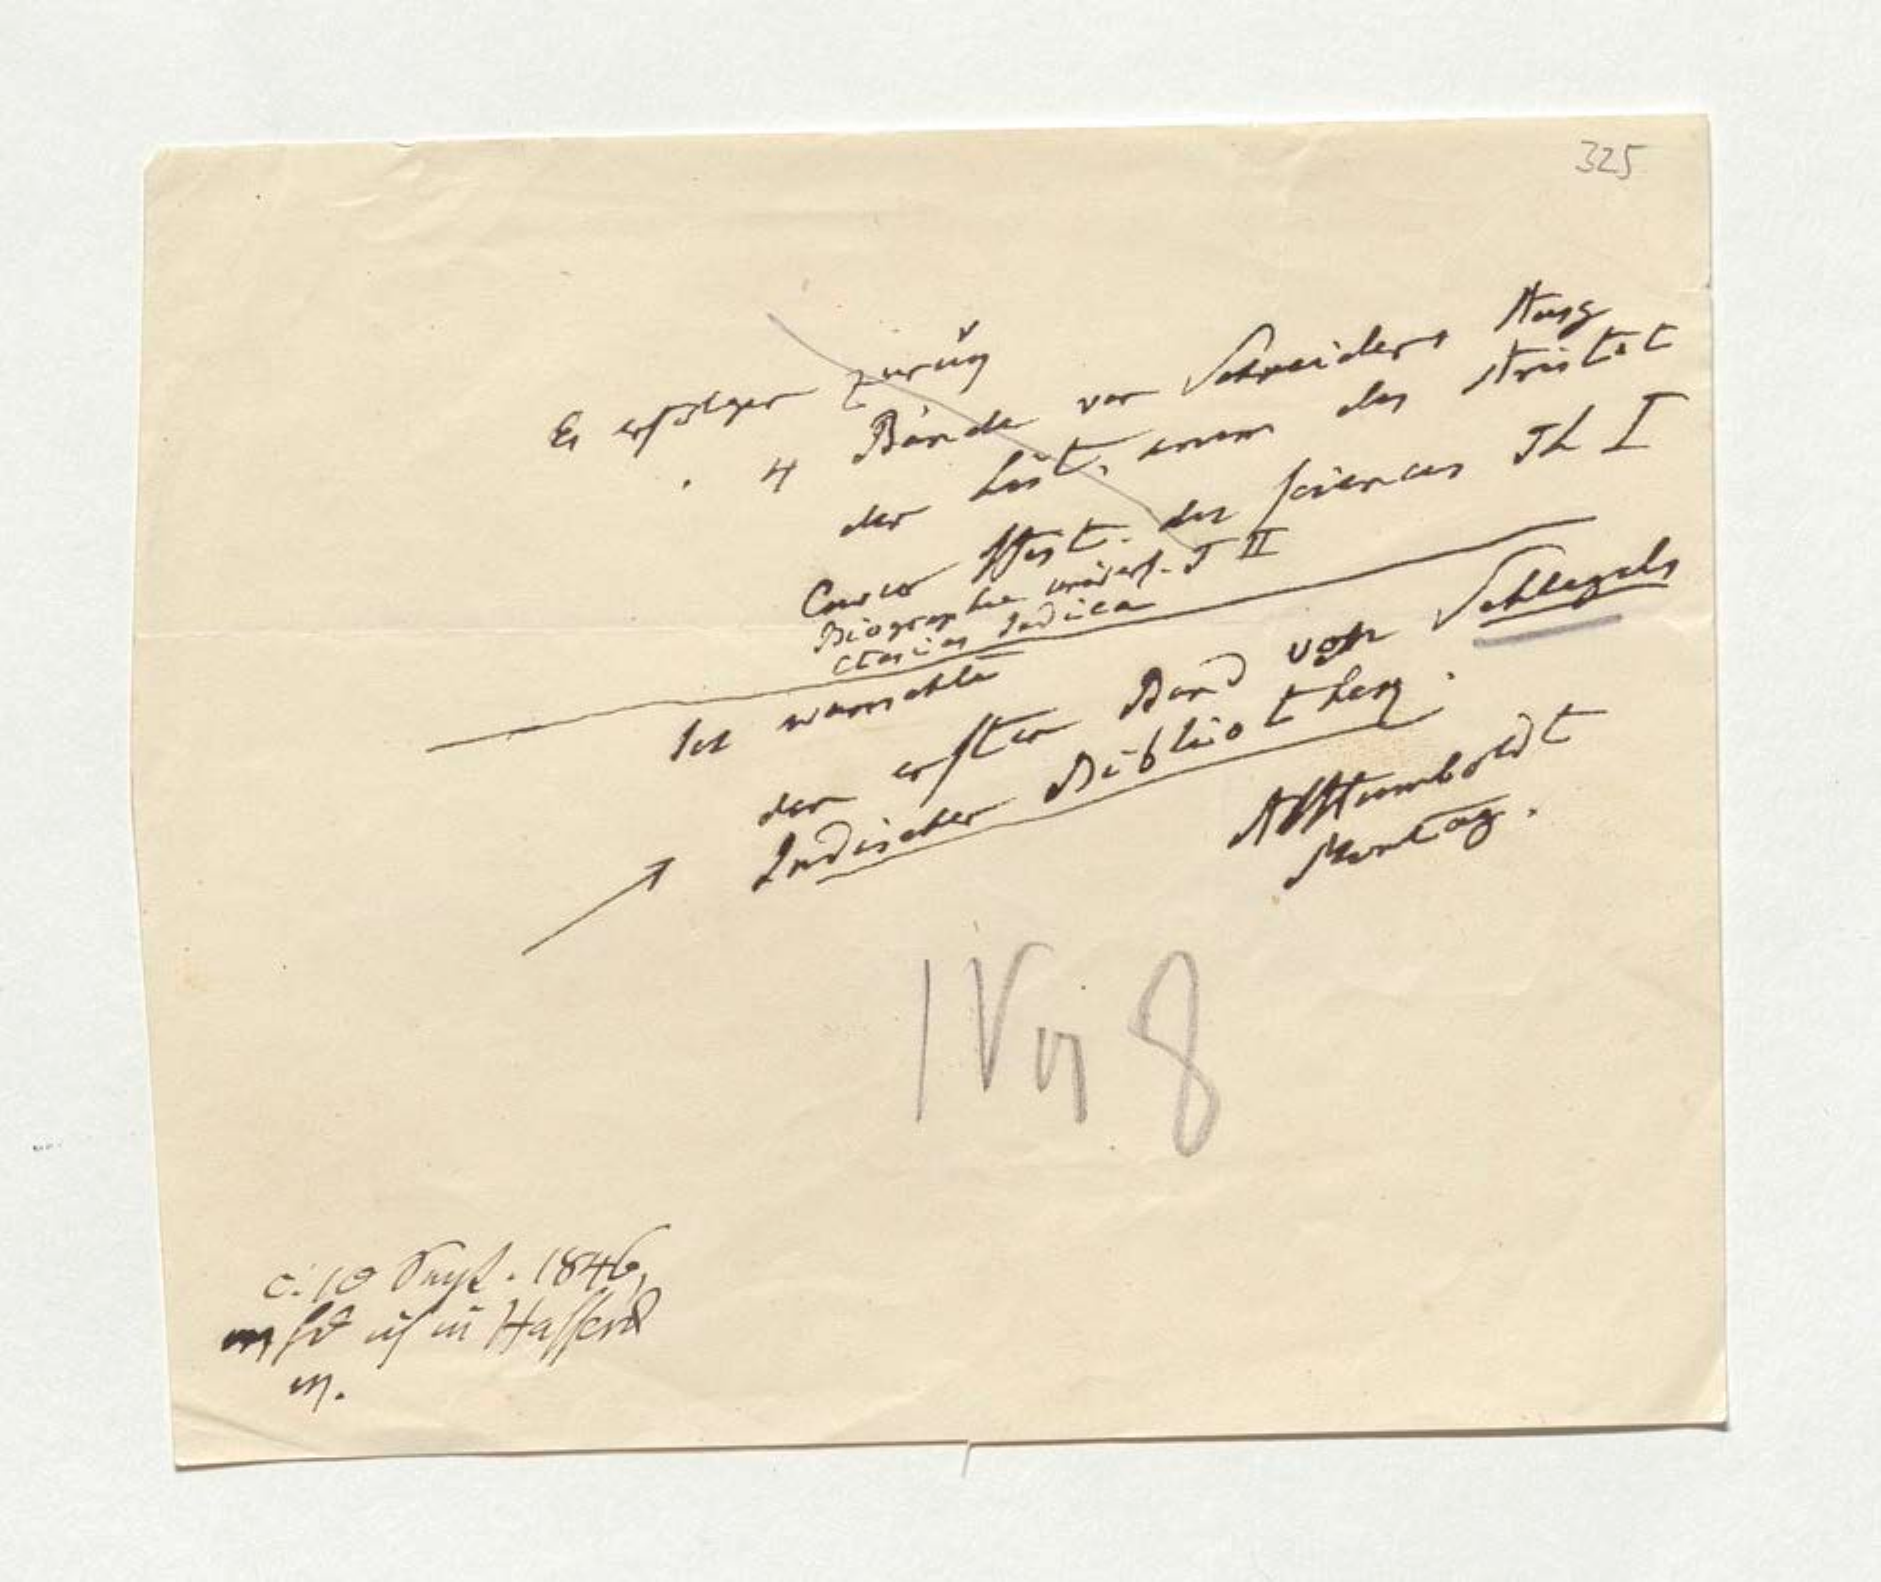 325
Es erfolgen zurük
4 Bände von Schneiders Ausg
der hist. anim des Aristot
Cuvier Hist. des sciences Th I
Biographie univers. T II
Ctesias Indica
Ich wünschte
den ersten Band von Schlegels
Indischer Bibliothek.
AHumboldt
Montag.
c. 10 Sept. 1846,
ich in